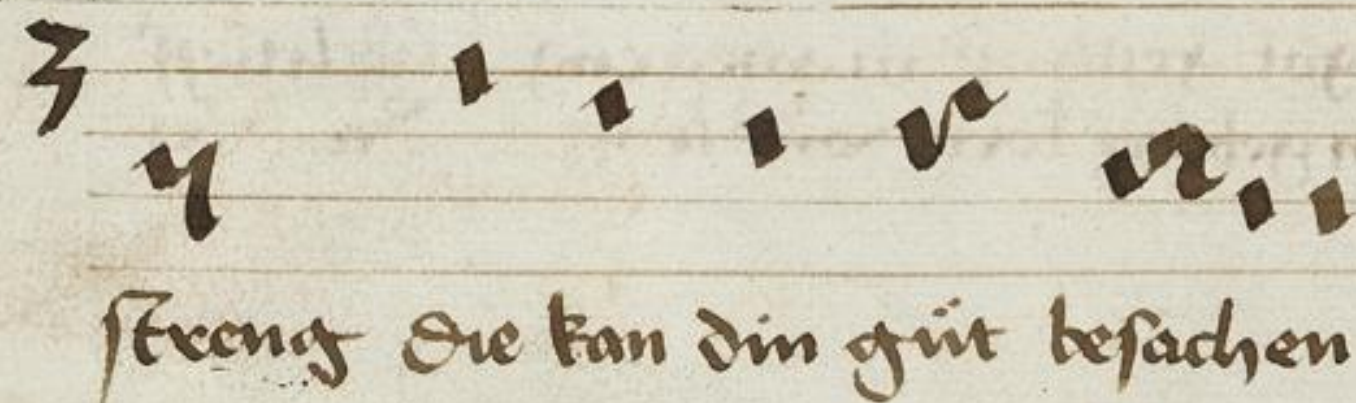 streng die kan din güt besachen